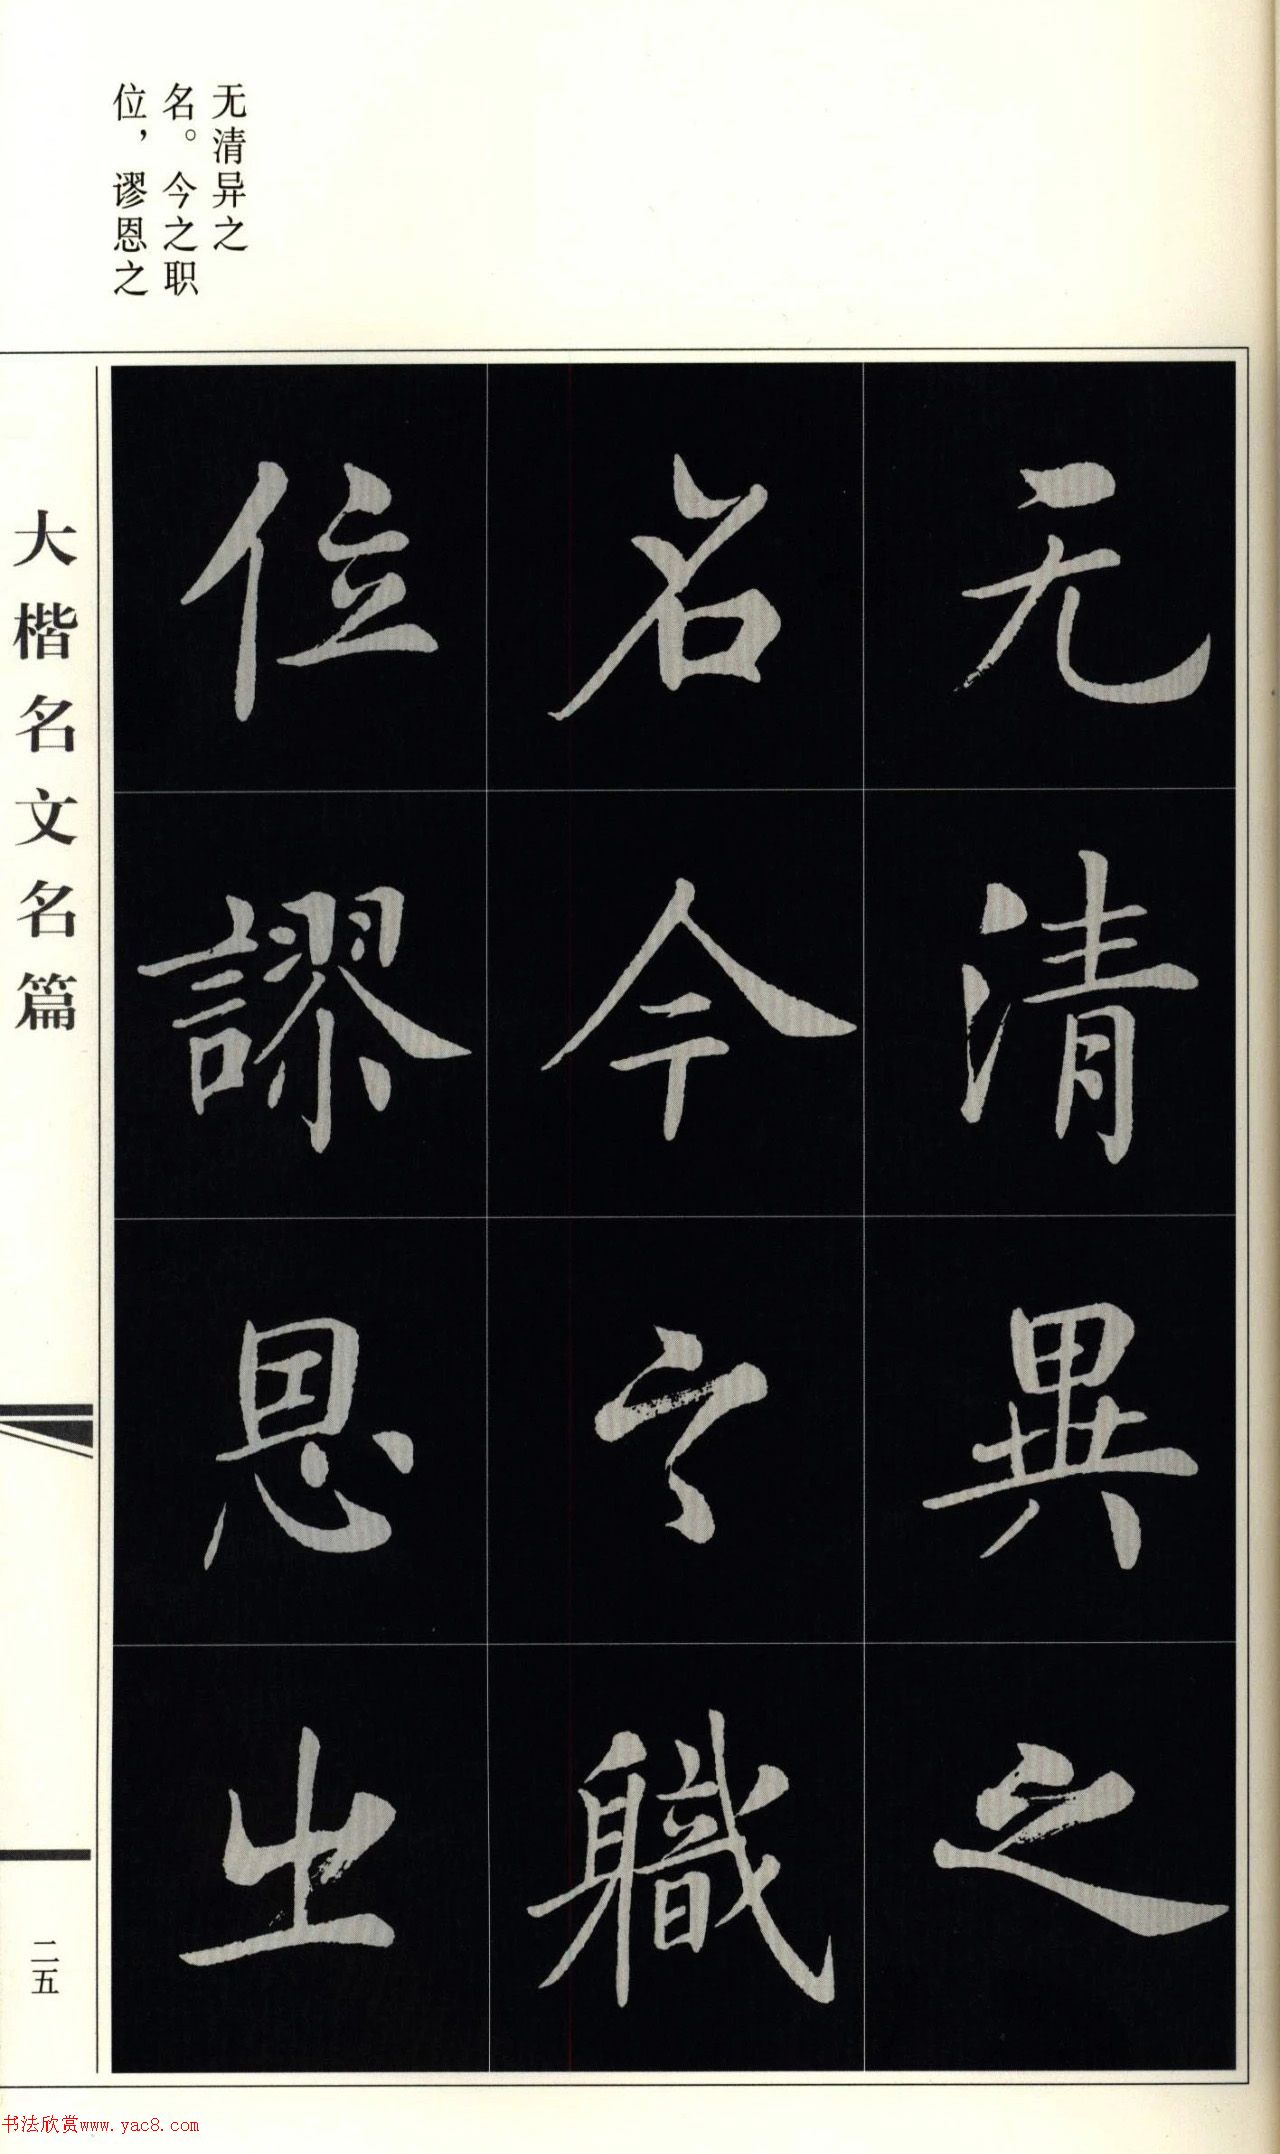 无清异之
名。今之职
位，谬恩之
无清異之
名今之職
位謬恩之
大楷名文名篇
二五
书法欣赏www.yac8.com